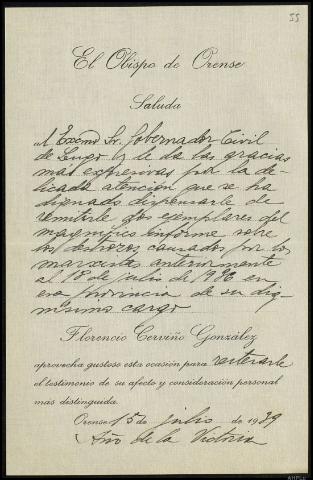 55
El Obispo de Orense
Saluda
al Excmo Sr. Gobernador Civil
de Lugo y le da las gracias
mas expresivas por la de-
licada atención que se ha
dignado dispensarle de
remitirle dos ejemplares del
magnifico informe sobre
los destrozos causados por los
marxistas anteriormente
al 18 de julio de 1936 en
esa provincia de su dig-
nisimo cargo
Florencio Cerviño González
aprovecha gustoso esta ocasión para reiterarle
el testimonio de su afecto y consideración personal
más distinguida.
Orense 15 de julio de 1939
Año de la Victoria